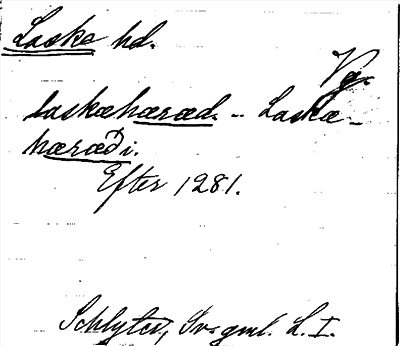 Laske hd.
Vg.
laskæhæræd. - Laskæ-
hæræði.
Efter 1281.
Schlyter, Sv. gml. L. I.